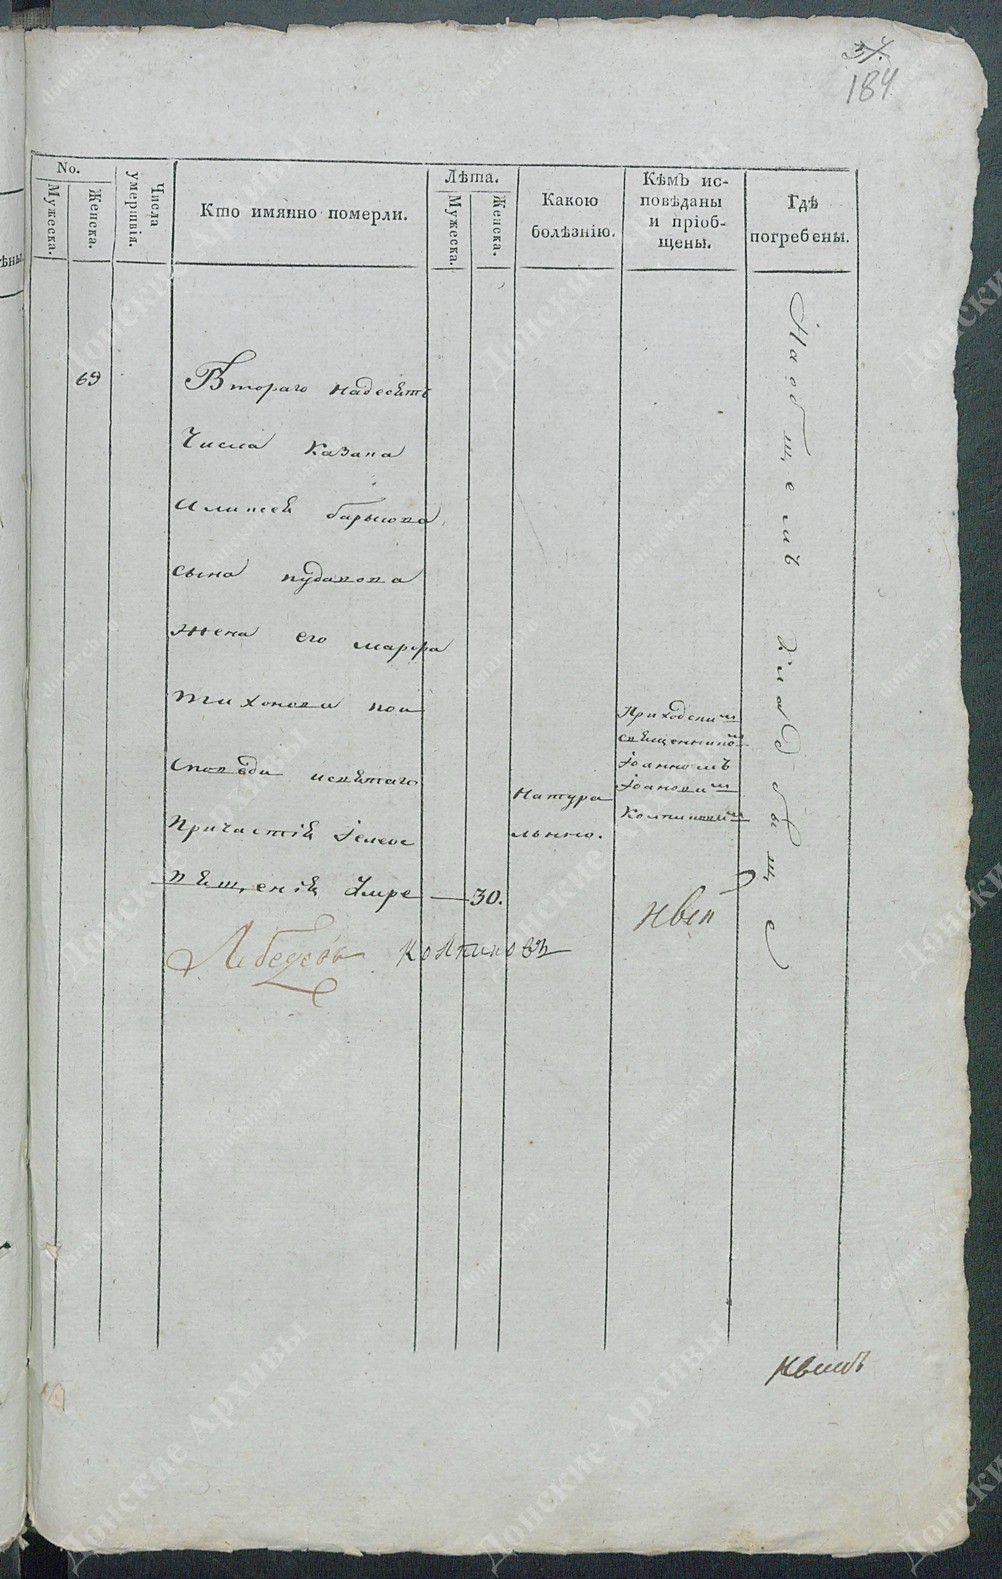 37.
184
No.
Мужеска.
Женска.
Числа умерт­вія.
Кто имянно померли.
Лѣта.
Мужеска.
Женска.
Какою
болѣзнію.
Кѣмъ ис-
повѣданы
и пріоб-
щены.
Гдѣ
погребены.
69
Втораго надесять
Числа казака
Аликсея барысова
сына пудавова
Жена его марфа
Тихонова
споведи исвѣтаго
Причастія
вѣщенія Умре — 30.
Натура
льнно.
Приходским
свещеннико
Іоанномъ
Іоановим
Колпиковым
На общемъ кладбыще
Лебедевъ Колпиковъ